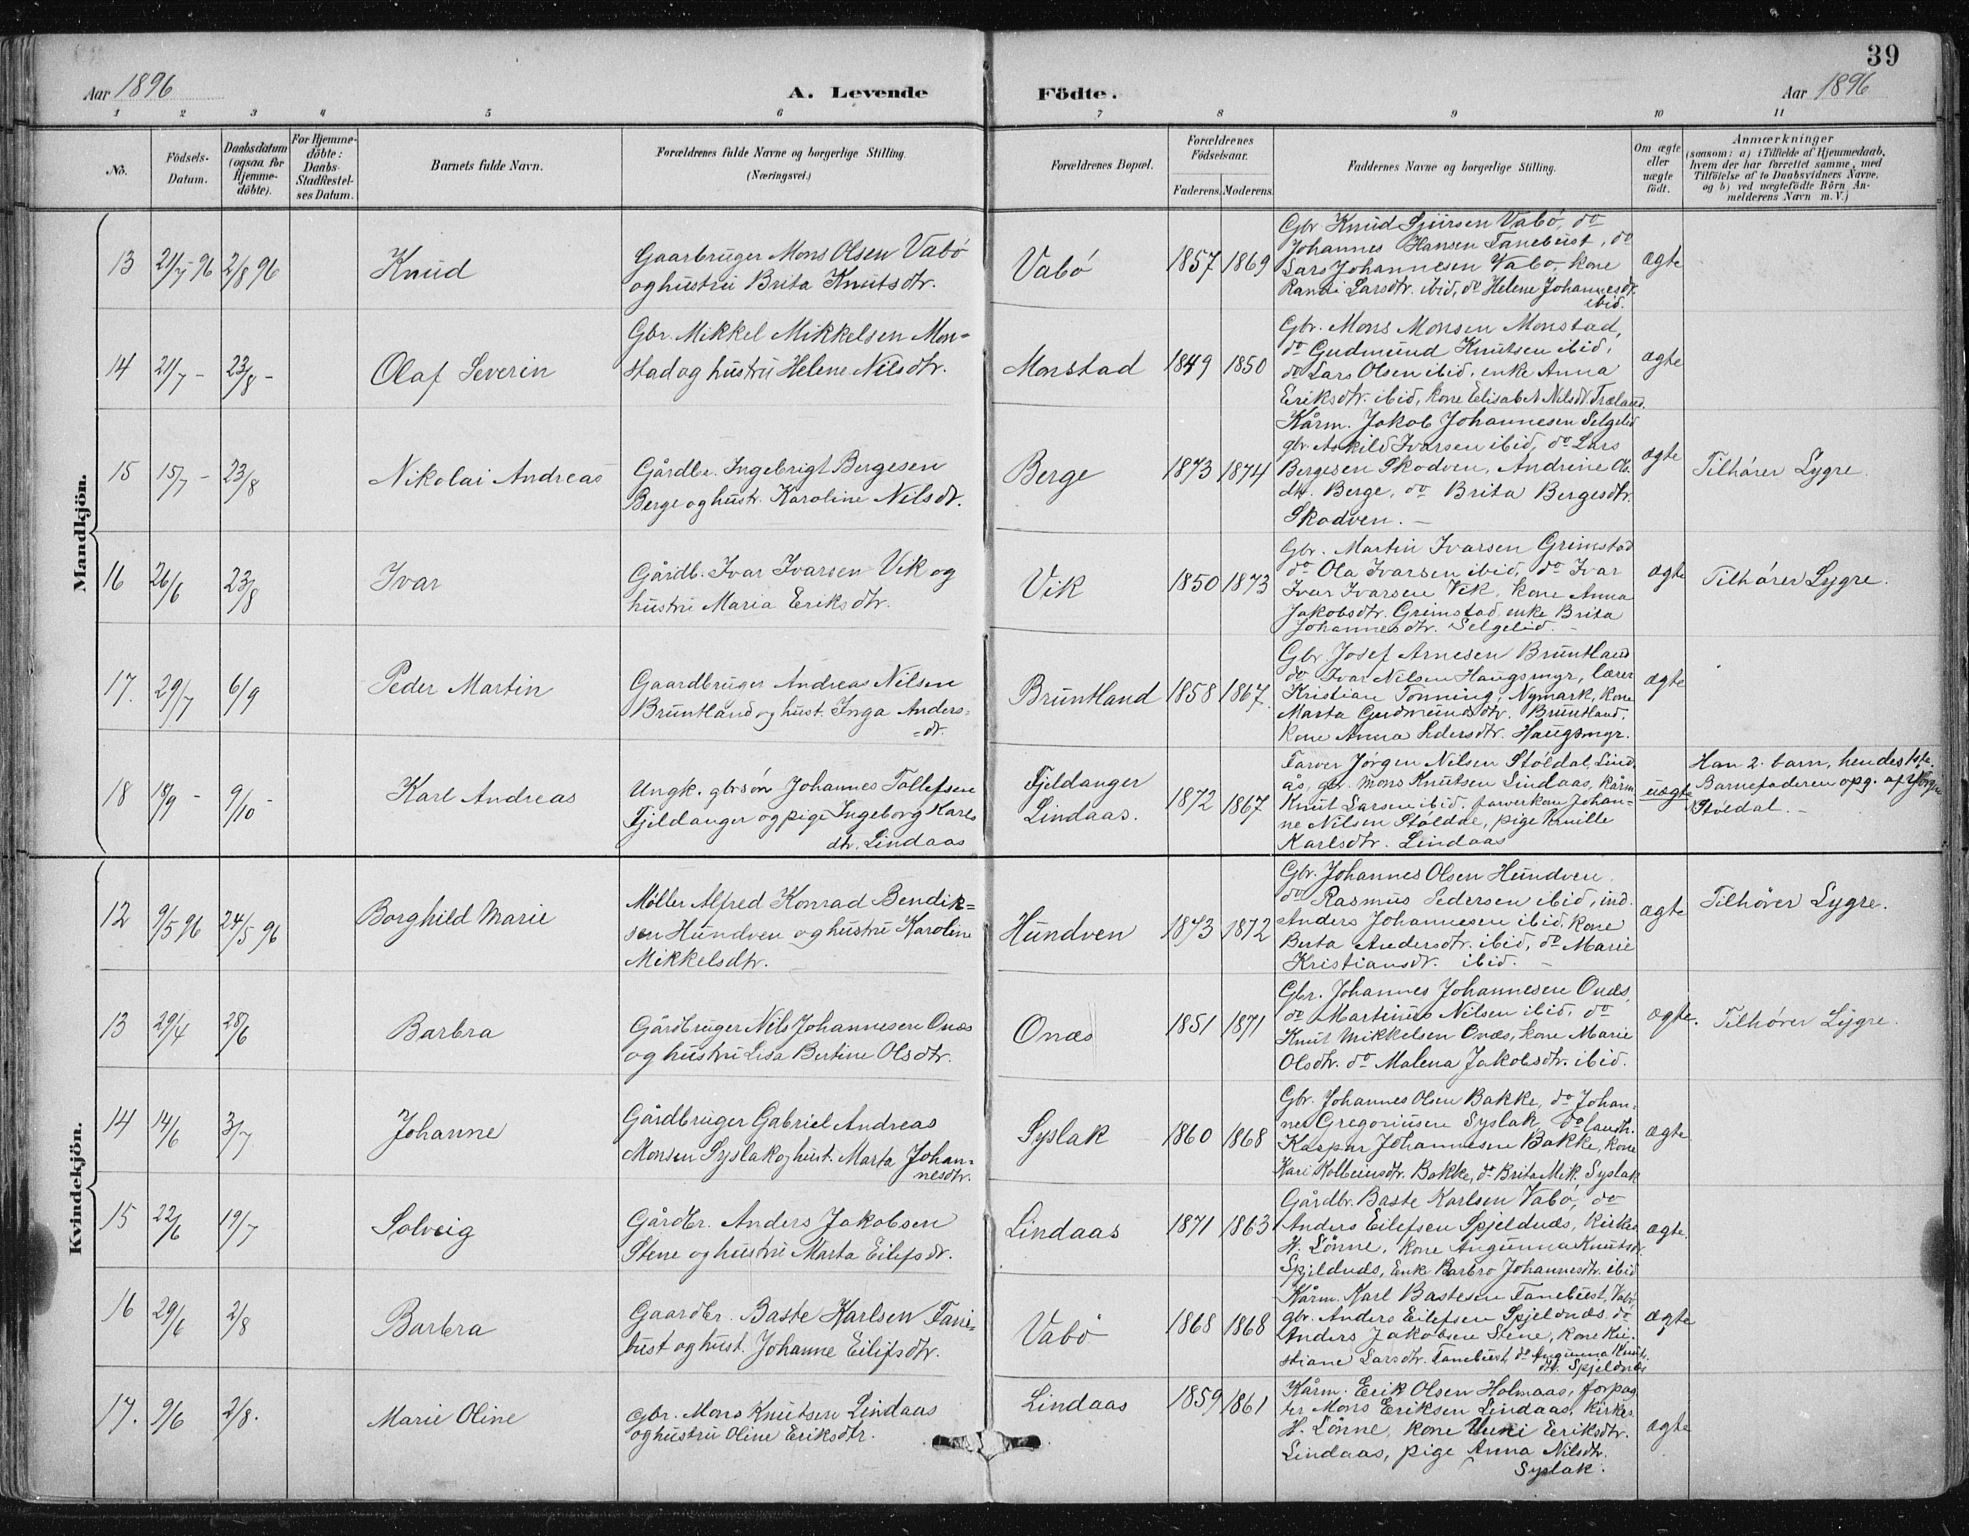 39
Aar 1896
A. Levende
Födte.
Aar 1896
1 2 3 4 5 6 7 8 9 10 11
No.
Födsels-
Datum.
Daabsdatum
(ogsaa for
Hjemme-
döbte).
For Hjemme-
döbte:
Daabs-
Stadfæstel-
ses Datum.
Barnets fulde Navn.
Forældrenes fulde Navne og borgerlige Stilling.
(Næringsvei.)
Forældrenes Bopæl.
Forældrenes
Födselsaar.
Faderens. Moderens.
Faddernes Navne og borgerlige Stilling.
Om ægte
eller
uægte
födt.
Anmærkninger
(saasom: a) i Tilfælde af Hjemmedaab,
hvem der har forrettet samme, med
Tilföielse af to Daabsvidners Navne,
og b) ved uægtefödte Börn An-
melderens Navn m. V.)
Mandkjön.
13
21/7 96
2/8 96
Knud
Gaarbruger Mons Olsen Vabö
og hustru Brita Knutsdtr.
Vabö
1857
1869
Gbr Knud Sjursen Vabö, do
Johannes Hansen Fanebust, do
Lars Johannesen Vabö, kone
Randi Larsdtr. ibid, do Helene Johannesdt.
ibid.
ægte
14
21/7 -
23/8 -
Olaf Severin
Gbr. Mikkel Mikkelsen Mon-
stad og hustru Helene Nilsdtr.
Monstad
1849
1850
Gbr. Mons Monsen Monstad,
do Gudmund Knutsen ibid,
do Lars Olsen ibid, enke Anna
Eriksdtr. ibid, kone Elisabet Nilsdt. Træland.
ægte
15
15/7 -
23/8
Nikolai Andreas
Gårdbr. Ingebrigt Bergesen
Berge og hustr. Karoline Nilsdt.
Berge
1873
1874
Kårm. Jakob Johannesen Selgelid
gbr. Askild Ivarsen ibid, do Lars
Bergesen Skodven, Andrine Ol.
dtr. Berge, do Brita Bergesdtr.
Skodven. -
ægte
Tilhører Lygre.
16
26/6
23/8
Ivar
Gårdb. Ivar Ivarsen Vik og
hustru Maria Eriksdtr.
Vik
1850
1873
Gbr. Martin Ivarsen Grimstad
do Ola Ivarsen ibid, do Ivar
Ivar Ivarsen Vik, kone Anna
Jakobsdtr. Grimstad, enke Brita
Johannesdtr. Selgelid. -
ægte
Tilhører Lygre.
17.
29/7
6/9
Peder Martin
Gaardbruger Andreas Nilsen
Bruntland og hust. Inga Anders-
-dt.
Bruntland
1858
1867.
Gbr. Josef Arnesen Bruntland
do Ivar Nilsen Haugsmyr, lærer
Kristian Tonning, Nymark, kone
Marta Gudmundsdtr. Bruntland,
kone Anna Pedersdtr. Haugsmyr.
ægte
18
18/9 -
9/10 -
Karl Andreas
Ungk. gbrsøn Johannes Tollefsen
Fjeldanger og pige Ingeborg Karls
dtr. Lindaas
Fjeldanger
Lindaas.
1872
1867
Farver Jørgen Nilsen Støldal, Lind
ås, gbr. Mons Knutsen Lindaas, kårm
Knut Larsen ibid, farverkone Johan-
ne Nilsen Støldal, pige Brulle
Karlsdtr. Lindaas
uægte
Han 2. barn, hendes 1ste.
Barnefaderen opg. af Jörgen
Støldal. -
Kvindekjön.
12
9/5 96
24/5 96
Borghild Marie
Møller Alfred Konrad Bendik-
sen Hundven og hustru Karoline
Mikkelsdtr.
Hundven
1873
1872
Gbr. Johannes Olsen Hundven.
do Rasmus Pedersen ibid, ind.
Anders Johannesen ibid, kone
Berta Andersdtr. ibid, do Marie
Kristiansdt. ibid. -
ægte
Tilhører Lygre.
13
29/4
28/6
Barbra
Gårdbruger Nils Johannesen Onæs
og hustru Lisa Bertine Olsdtr.
Onæs
1851
1871
Gbr. Johannes Johannesen Onæs,
do Martinus Nilsen ibid, do
Knut Mikkelsen Onæs, kone Marie
Olsdtr. do Malena Jakobsdtr. ibid.
ægte.
Tilhører Lygre.
14
14/6
3/7
Johanne
Gårdbruger Gabriel Andreas
Monsen Syslak og hust. Marta Johan-
nesdtr.
Syslak
1860
1868
Gbr. Johannes Olsen Bakke, do Johan-
nes Gregoriusen Syslak, do landh.
Kaspar Johannesen Bakke, kone
Kari Kolbeinsdtr. Bakke, do Brita Mik. Syslak
ægte.
15
22/6
19/7
Solveig
Gårdbr. Anders Jakobsen
Stene og hustru Marta Eilefsdt.
Lindaas
1871
1863
Gårdbr. Baste Karlsen Vabö, do
Anders Eilefsen Spjeldnæs, kirkes.
H. Lønne, kone Angunna Knutsdt.
Spjeldnæs, Enke Barbro Johannesdtr. ibid
ægte.
16
29/6
2/8
Barbra
Gaardbr. Baste Karlsen Fane-
bust og hust. Johanne Eilifsdtr.
Vabö
1868
1868
Kårm. Karl Bastesen Fanebust, Vabö,
gbr. Anders Eilefsen Spjeldnæs do
Anders Jakobsen Stene, kone Kri-
stiane Larsdtr. Fanebust, do Angunna Knut.
dtr. Spjeldnæs
ægte
17.
9/6
2/8.
Marie Oline
Gbr. Mons Knutsen Lindaas
og hustru Oline Eriksdtr.
Lindaas
1859
1861
Kårm. Erik Olsen Holmaas, forpag
ter Mons Eriksen Lindaas, kirkes.
H. Lønne, kone Unni Eriksdtr.
Lindaas, pige Anna Nilsdtr.
Syslak.
ægte